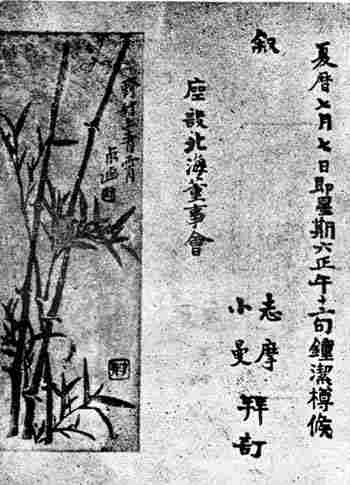 夏曆七月七日即星期六正午十二句鐘潔樽候
叙
座設北海董事會
志摩
小曼
拜訂
青霄